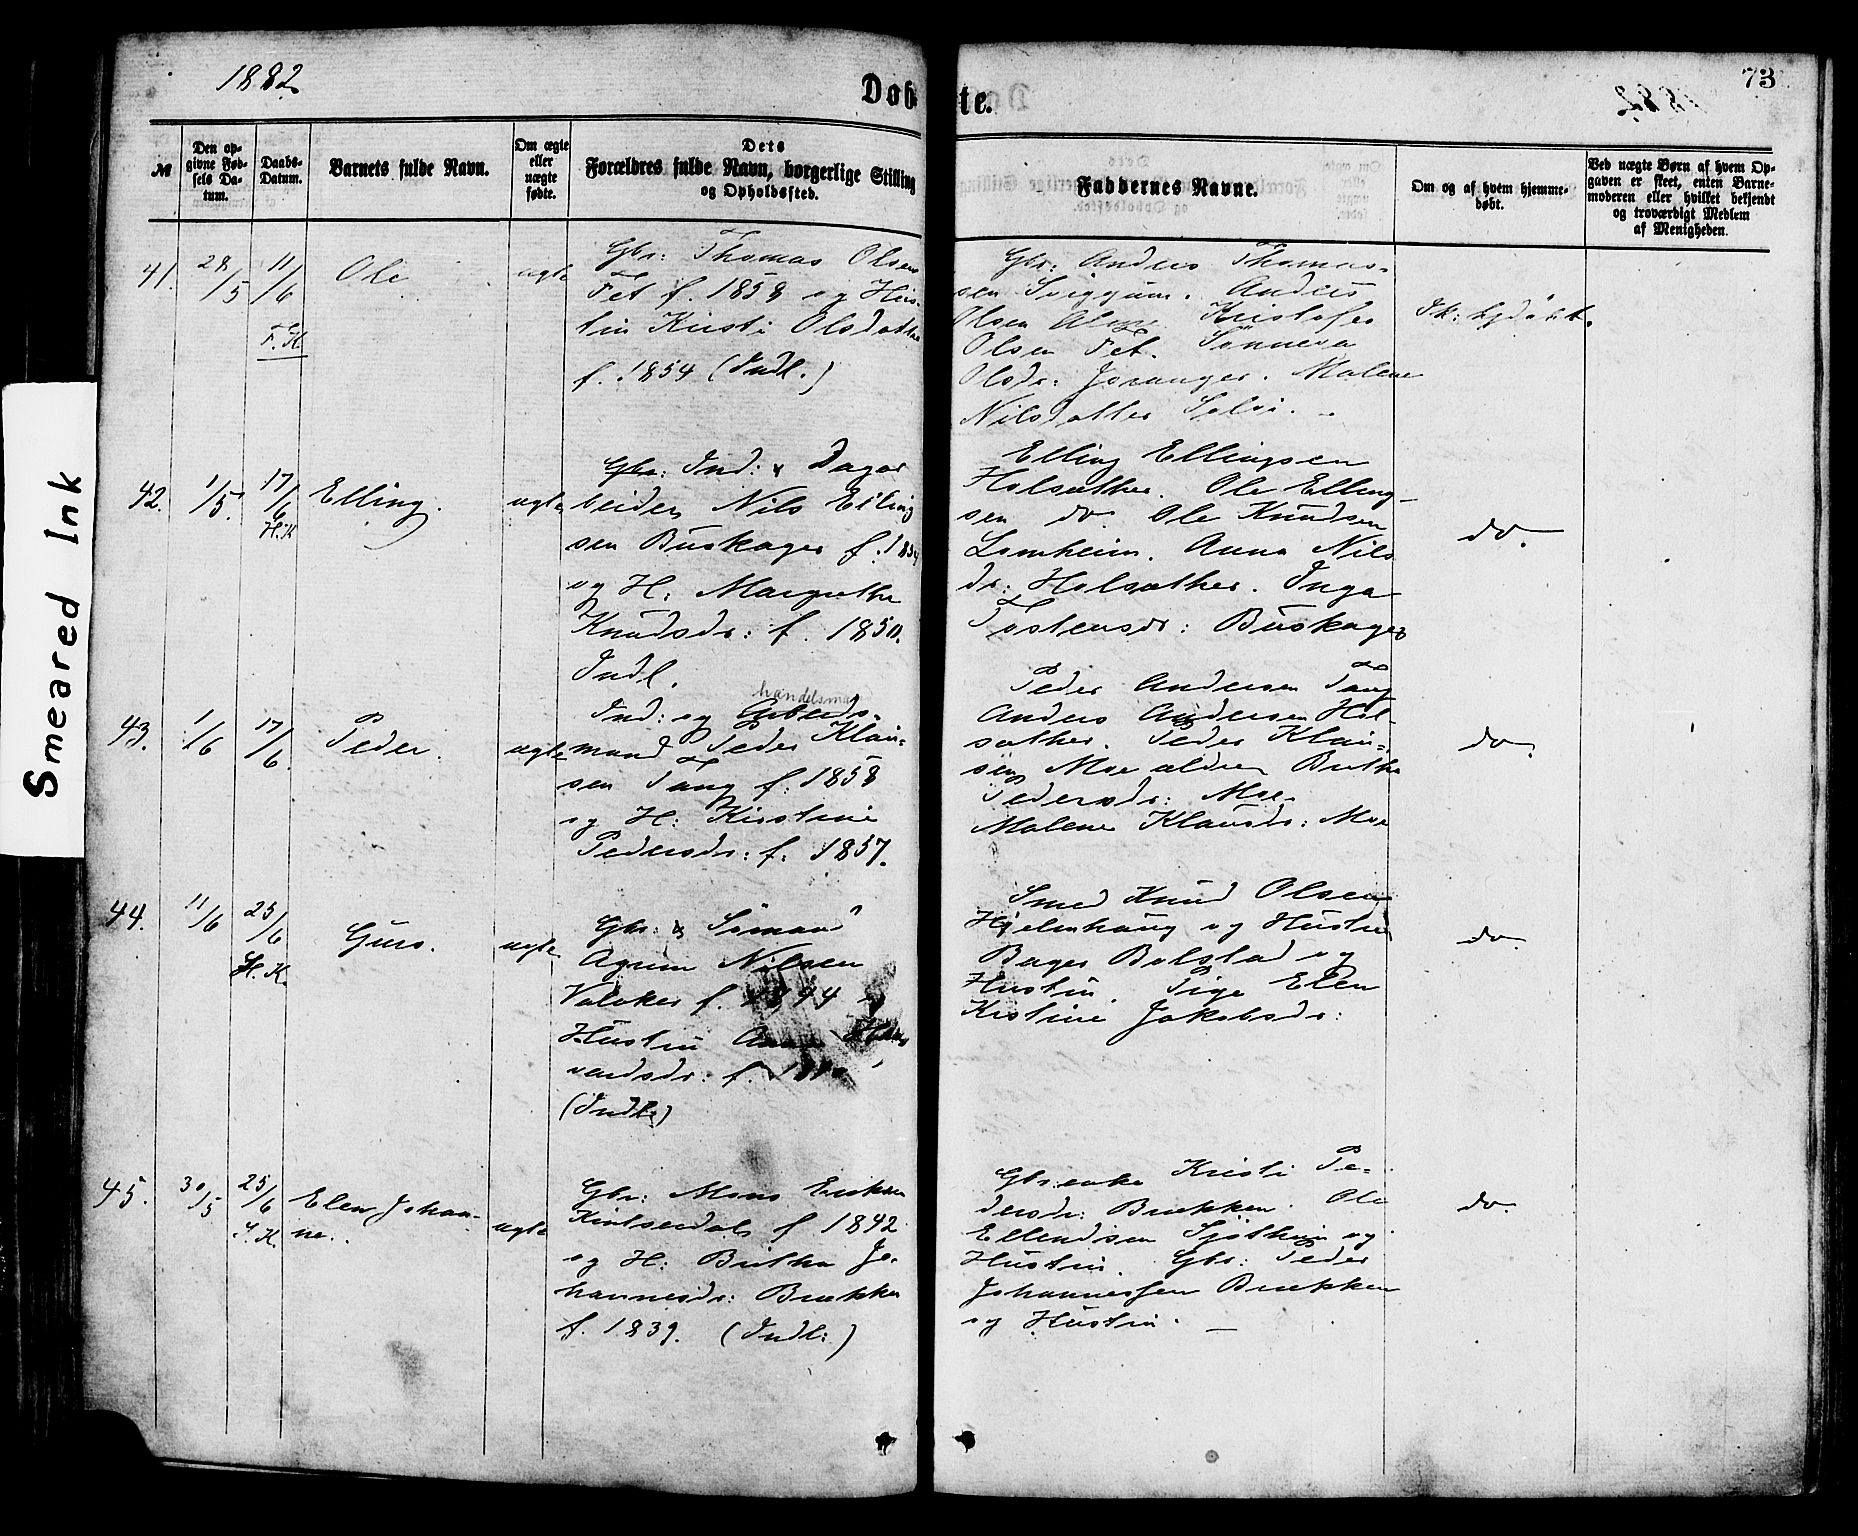 1882
Døbte.
73
№
Den opgivne Fødsels Datum.
Daabs-Datum.
Barnets fulde Navn.
Om ægte eller uægte fødte.
Dets Forældres fulde Navn, borgerlige Stilling og Opholdssted.
Faddernes Navne.
Om og af hvem hjemmedøbt.
Ved uægte Børn af hvem Opgaven er skeet, enten Barnemoderen eller hvilket bekjendt og troværdigt Medlem af Menigheden.
41.
28/5
11/6
F. K
Ole
ægte
Gbr: Thomas Olsen
Fet f. 1858 og Hus-
tru Kirsti Olsdatter
f. 1854 (Indl.)
Gbr: Anders Thomas-
sen Sviggum. Anders
Olsen Kristofer
Olsen Fet. Synneva
Olsdr: Joranger. Malene
Nilsdatter
42.
1/5
17/6
H. K
Elling.
ægte
Gbr: Ind: & Dagar
beider Nils Elling
sen Buskager f. 1854
og H: Margrethe
Knudsdr: f. 1850.
Indl.
Elling Ellingsen
Holsæther. Ole Elling-
sen do. Ole Knudsen
Lomheim. Anna Nils
dr: Holsæther. Inga
Tostensdr: Buskager
do.
43.
1/6
17/6
Peder.
ægte
handelsma
Ind: og Arbeids-
mand Peder Klau-
sen Tang f. 1858
og H: Kirstine
Pedersdr: f. 1857.
Peder Andersen Tang
Anders Andersen Hol-
sæther. Peder Klau-
sen Moe ældre Brithe
Pedersdr: Moe.
Malene Klausdr: Moe
do.
44.
11/6
25/6
H. K.
Guro.
ægte
Gbr: & Sømand
Nilsen
Volaker f. 1844 og
Hustru Anna Hall-
vardsdr: f.
(Indl:)
Smed Knud Olsen
Hjelmhaug og Hustru
Bager Bolstad og
Hustru. Pige Elen
Kistine Jakobsdr:
do.
45.
30/5
25/6
Elen Johan-
ne.
ægte
Gbr: Mons Eriksen
Kinserdal f 1842
og H: Brithe Jo-
hannesdr: Brækken
f. 1839. (Indl:)
Gbr:enke Kristi Pe-
dersdr: Brækken. Ole
Ellendsen Sjøtheim og
Hustru. Gbr: Peder
Johannessen Brækken
og Hustru.
do.
Smeared Ink